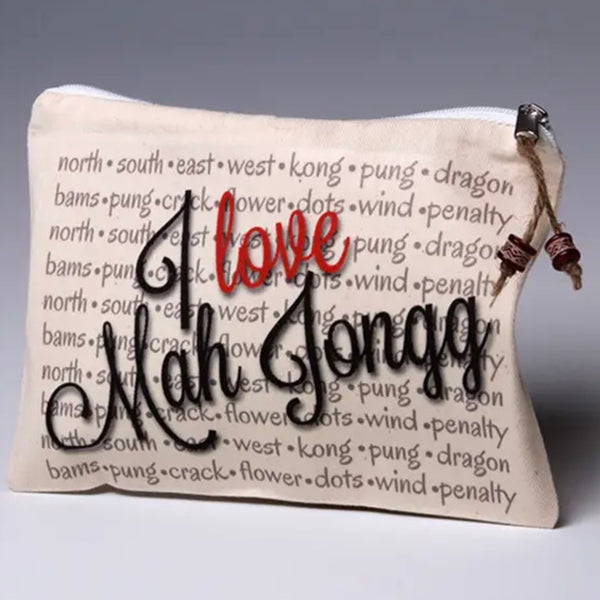 north • south • east • west • kong • pung • dragon
bams • pung • crack • flower • dots • wind • penalty
north • south • east • west • kong • pung • dragon
bams • pung • crack • flower • dots • wind • penalty
north • south • east • west • kong • pung • dragon
bams • pung • crack • flower • dots • wind • penalty
north • south • east • west • kong • pung • dragon
bams • pung • crack • flower • dots • wind • penalty
north • south • east • west • kong • pung • dragon
bams • pung • crack • flower • dots • wind • penalty
I love
Mah Jongg